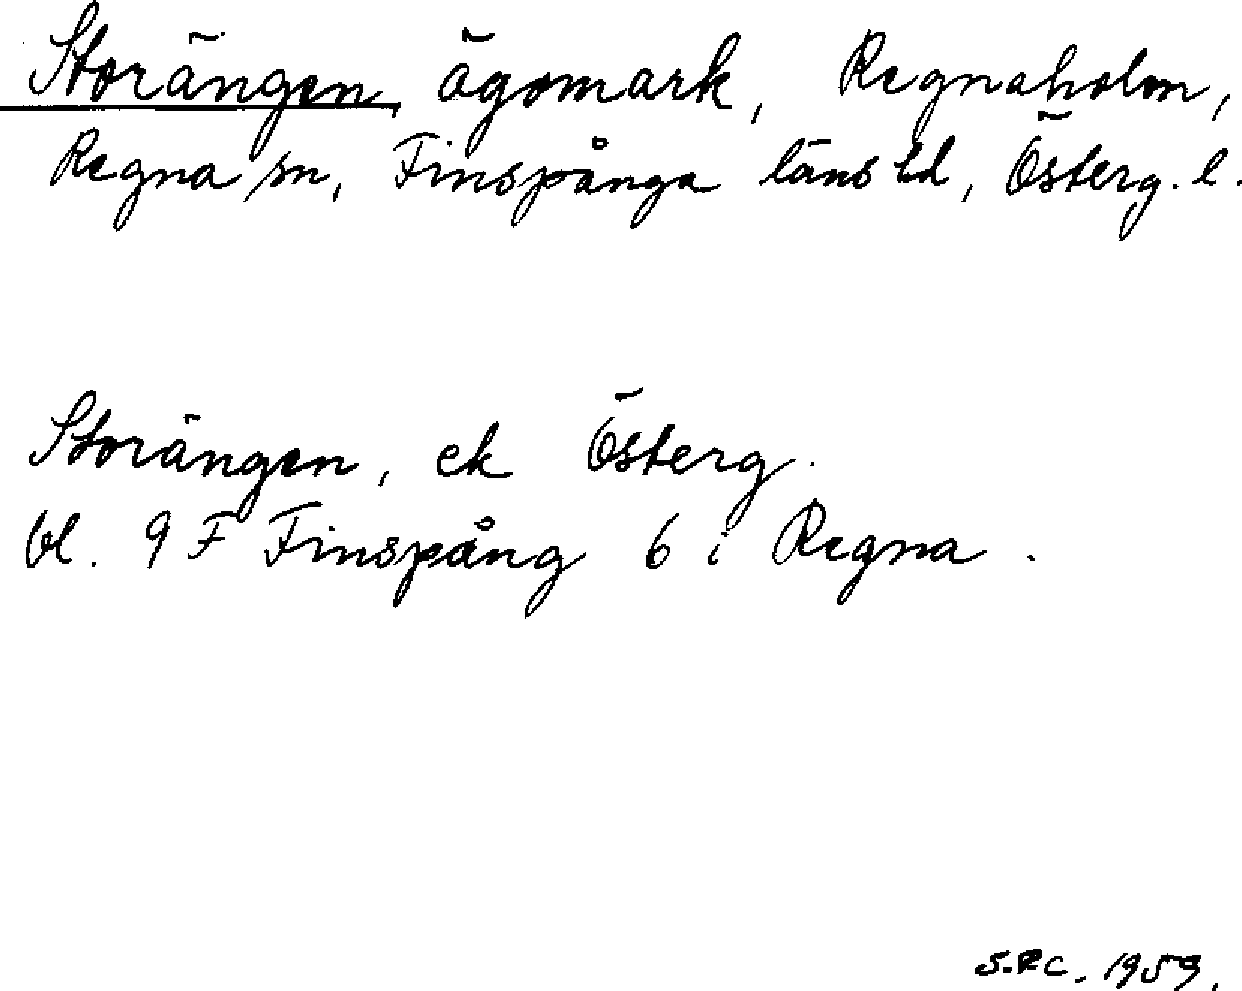 Storängen, ägomark, Regnaholm,
Regna sn, Finspånga läns hd, Österg. l.
Storängen, ek Österg.
bl. 9 F Finspång 6 i Regna.
S.P.C. 1959.